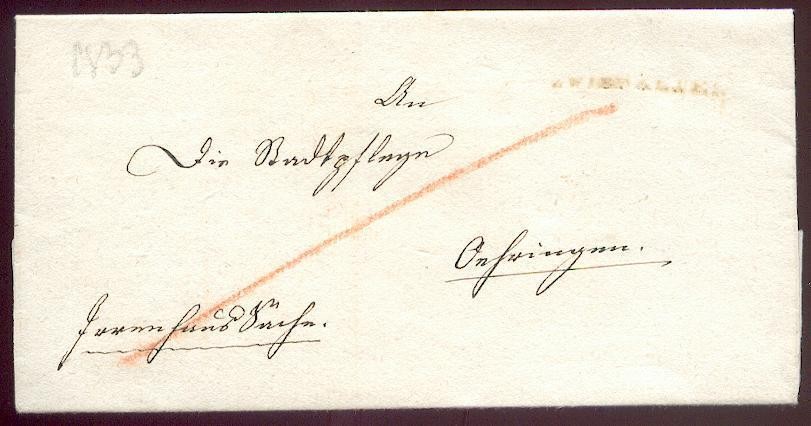 1833
An
Die Stadtpflege
Oehringen.
Irrenhaus Sache.